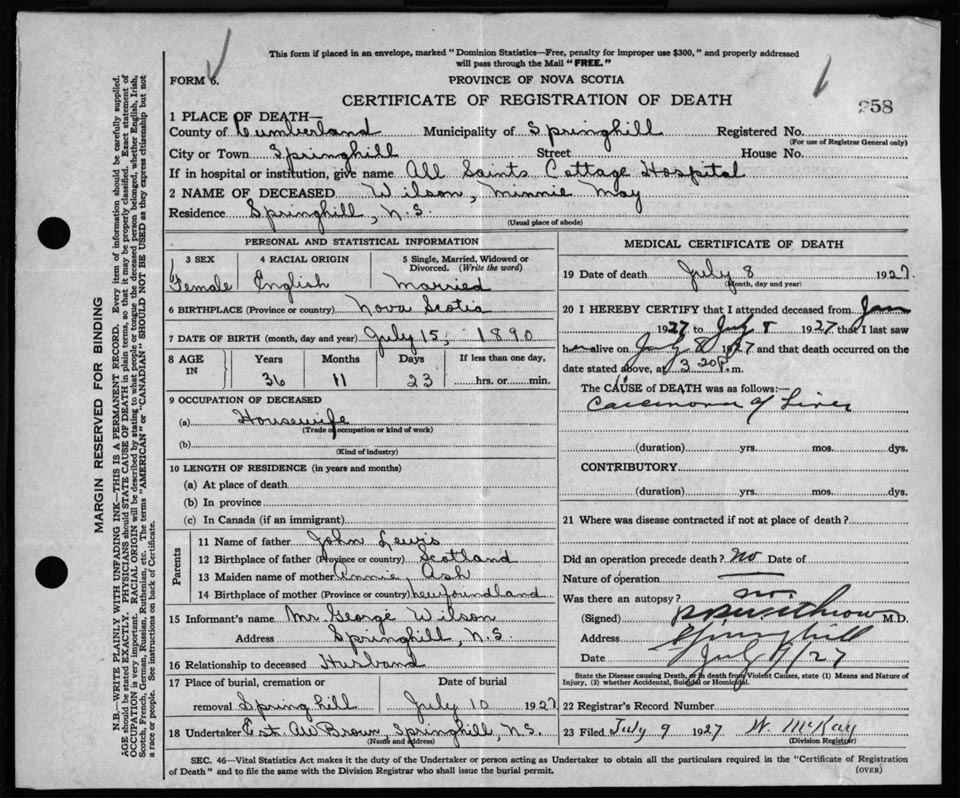 This form if placed in an envelope, marked "Dominion Statistics—Free, penalty for improper use $300," and properly addressed
will pass through the Mail "FREE."
FORM 6.
PROVINCE OF NOVA SCOTIA
CERTIFICATE OF REGISTRATION OF DEATH
258
1 PLACE OF DEATH—
County of Cumberland Municipality of Springhill Registered No.
(For use of Registrar General only)
City or Town Springhill Street House No.
If in hospital or institution, give name All Saints Cottage Hospital
2 NAME OF DECEASED Wilson, Minnie May
Residence Springhill, N.S.
(Usual place of abode)
PERSONAL AND STATISTICAL INFORMATION
3 SEX 4 RACIAL ORIGIN 5 Single, Married, Widowed or
Divorced. (Write the word)
Female English Married
6 BIRTHPLACE (Province or country) Nova Scotia
7 DATE OF BIRTH (month, day and year) July 15, 1890
8 AGE IN Years Months Days If less than one day,
36 11 23 hrs. or min.
9 OCCUPATION OF DECEASED
(a) Housewife
(Trade or occupation or kind of work)
(b)
(Kind of industry)
10 LENGTH OF RESIDENCE (in years and months)
(a) At place of death
(b) In province
(c) In Canada (if an immigrant)
Parents
11 Name of father John Lewis
12 Birthplace of father (Province or country) Scotland
13 Maiden name of mother Annie Ash
14 Birthplace of mother (Province or country) Newfoundland
15 Informant's name Mr. George Wilson
Address Springhill, N.S.
16 Relationship to deceased Husband
17 Place of burial, cremation or Date of burial
removal Springhill July 10 1927
18 Undertaker Est. AW Brown, Springhill, N.S.
(Name and address)
MEDICAL CERTIFICATE OF DEATH
19 Date of death July 8 1927.
(Month, day and year)
20 I HEREBY CERTIFY that I attended deceased from Jan
1927 to July 8 1927 that I last saw
her alive on July 8 1927 and that death occurred on the
date stated above, at 3 20 P.m.
The CAUSE of DEATH was as follows:—
Carcinoma of Liver
(duration) yrs. mos. dys.
CONTRIBUTORY
(duration) yrs. mos. dys.
21 Where was disease contracted if not at place of death?
Did an operation precede death? no Date of
Nature of operation
Was there an autopsy? no.
(Signed) M.D.
Address Springhill
Date July 9/27
State the Disease causing Death, or in death from Violent Causes, state (1) Means and Nature of
Injury, (2) whether Accidental, Suicidal or Homicidal.
22 Registrar's Record Number
23 Filed July 9 1927 W. McKay
(Division Registrar)
SEC. 46—Vital Statistics Act makes it the duty of the Undertaker or person acting as Undertaker to obtain all the particulars required in the "Certificate of Registration
of Death" and to file the same with the Division Registrar who shall issue the burial permit.
(OVER)
MARGIN RESERVED FOR BINDING
N.B.—WRITE PLAINLY WITH UNFADING INK—THIS IS A PERMANENT RECORD. Every item of information should be carefully supplied.
AGE should be stated EXACTLY. PHYSICIANS should STATE CAUSE OF DEATH in plain terms, so that it may be properly classified. Exact statement of
OCCUPATION is very important. RACIAL ORIGIN will be described by stating to what people or tongue the deceased person belonged, whether English, Irish,
Scotch, French, German, Russian, Ruthenian, etc. The terms "AMERICAN" or "CANADIAN" SHOULD NOT BE USED as they express citizenship but not
a race or people. See instructions on back of Certificate.